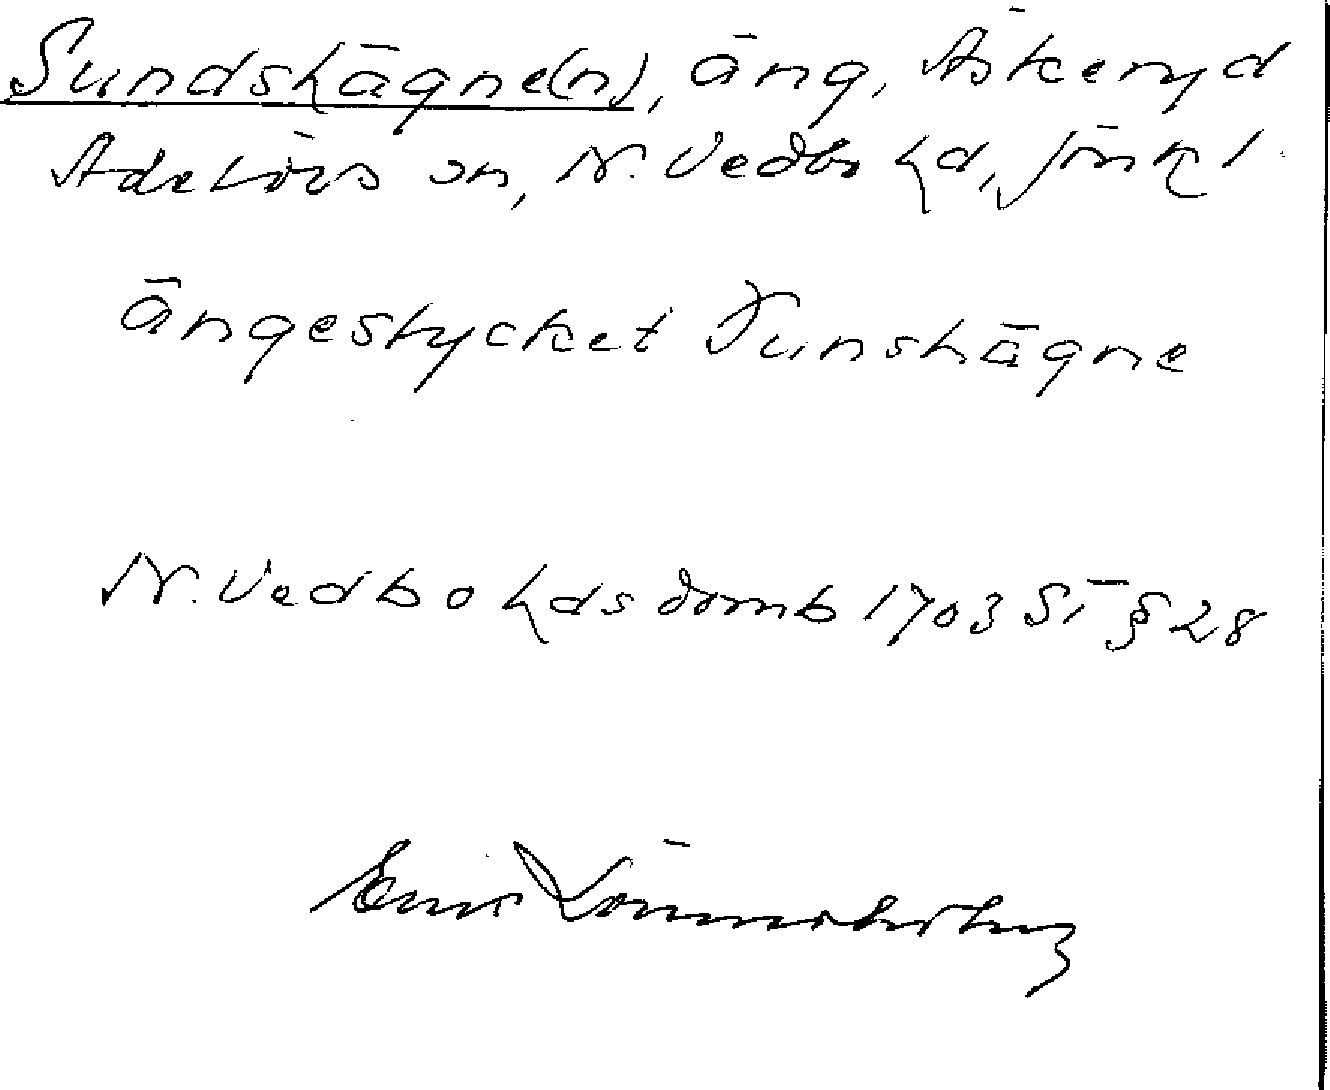 Sundshägne(n), äng, Askeryd
Adelövs sn, N. Vedbo hd, Jönk l.
ängestycket Sunshägne
N. Vedbo hds domb 1703 ST § 28